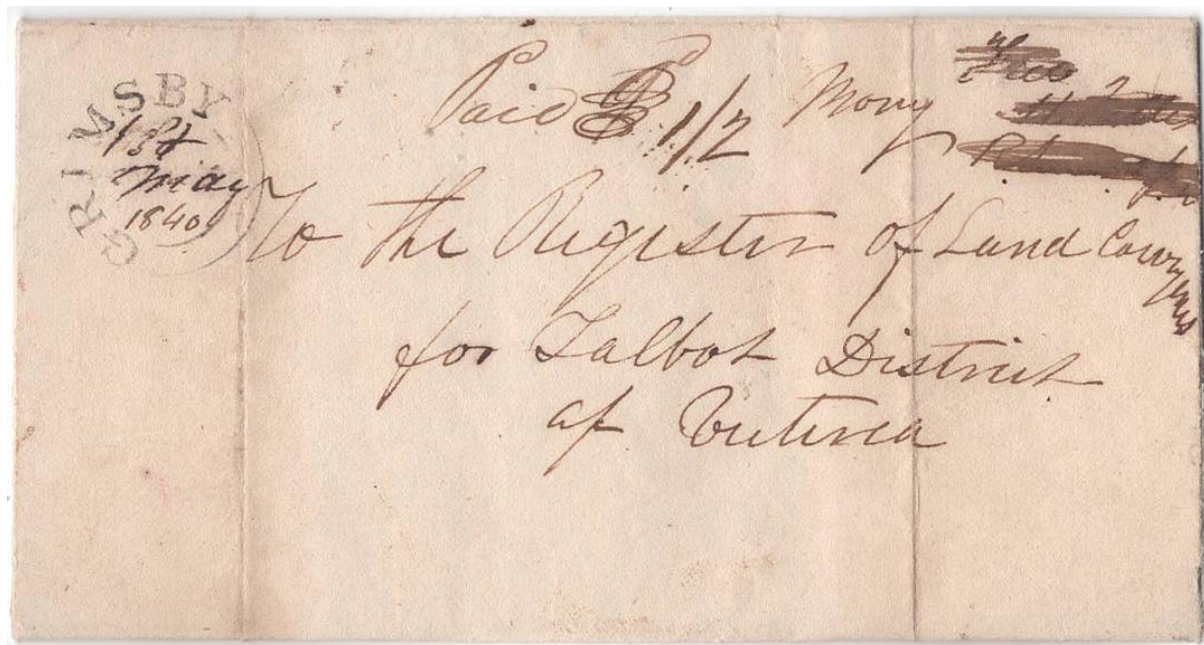 GRIMSBY
1st
May
1840
Paid 1/2 Mony
Free
To the Register of Land Convyances
for Talbot District
at Victoria